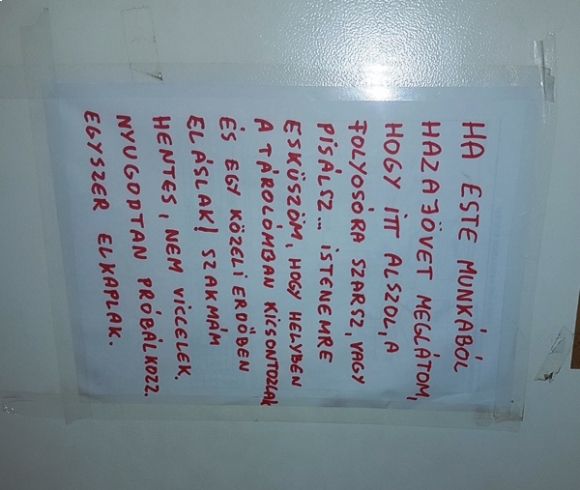 HA ESTE MUNKÁBÓL
HAZAJÖVET MEGLÁTOM,
HOGY ITT ALSZOL, A
FOLYOSÓRA SZARSZ, VAGY
PISÁLSZ... ISTENEMRE
ESKÜSZÖM, HOGY HELYBEN
A TÁROLÓMBAN KICSONTOZLAK
ÉS EGY KÖZELI ERDŐBEN
ELÁSLAK! SZAKMÁM
HENTES, NEM VICCELEK.
NYUGODTAN PRÓBÁLKOZZ.
EGYSZER ELKAPLAK.